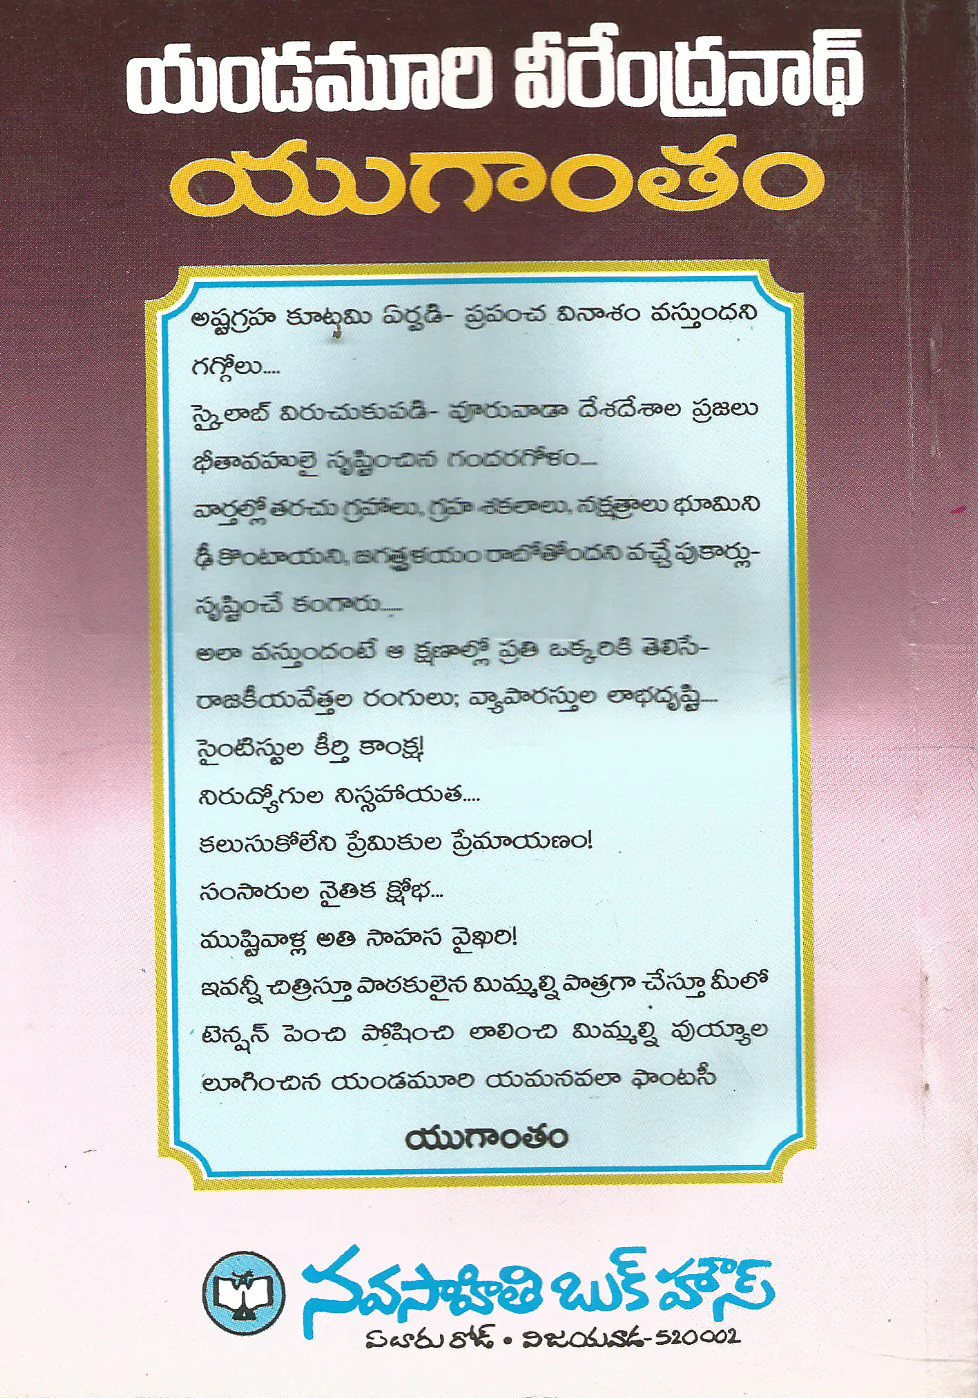 యండమూరి వీరేంద్రనాథ్
యుగాంతం
అష్టగ్రహ కూట్కమి ఏర్పడి- ప్రపంచ వినాశం వస్తుందని
గగ్గోలు....
స్కైలాబ్ విరుచుకుపడి- వూరువాడా దేశదేశాల ప్రజలు
భీతావహులై సృష్టించిన గందరగోళం....
వార్తల్లో తరచు గ్రహాలు, గ్రహ శకలాలు, నక్షత్రాలు భూమిని
ఢీ కొంటాయని, జగత్ప్రళయం రాబోతోందని వచ్చే పుకార్లు-
సృష్టించే కంగారు.....
అలా వస్తుందంటే ఆ క్షణాల్లో ప్రతి ఒక్కరికి తెలిసే-
రాజకీయవేత్తల రంగులు; వ్యాపారస్తుల లాభదృష్టి....
సైంటిస్టుల కీర్తి కాంక్ష!
నిరుద్యోగుల నిస్సహాయత....
కలుసుకోలేని ప్రేమికుల ప్రేమాయణం!
సంసారుల నైతిక క్షోభ...
ముష్టివాళ్ల అతి సాహస వైఖరి!
ఇవన్నీ చిత్రిస్తూ పాఠకులైన మిమ్మల్ని పాత్రగా చేస్తూ మీలో
టెన్షన్ పెంచి పోషించి లాలించి మిమ్మల్ని వుయ్యాల
లూగించిన యండమూరి యమనవలా ఫాంటసీ
యుగాంతం
నవసాహితి బుక్ హౌస్
ఏలూరు రోడ్ • విజయవాడ-520002